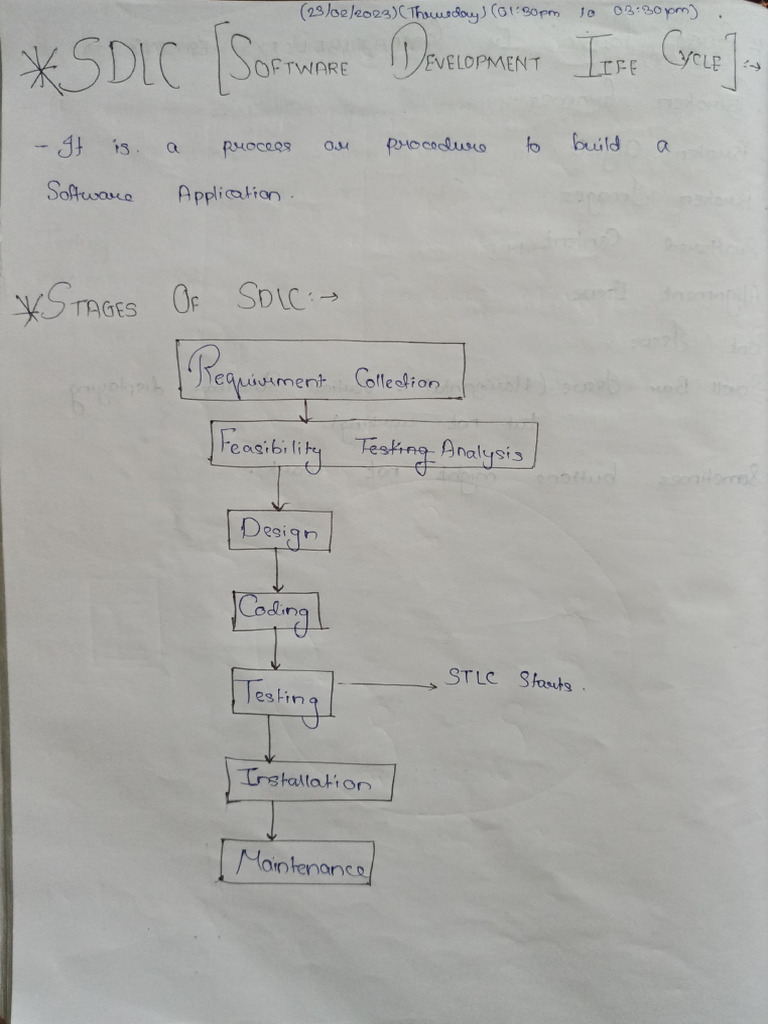 (23/02/2023) (Thursday) (01:30pm to 03:30pm).
*SDLC [SOFTWARE DEVELOPMENT LIFE CYCLE]:→
- It is a process or procedure to build a
Software Application.
*STAGES OF SDLC:→
Requirment Collection
Feasibility Testing Analysis
Design
Coding
Testing → STLC Starts.
Installation
Maintenance